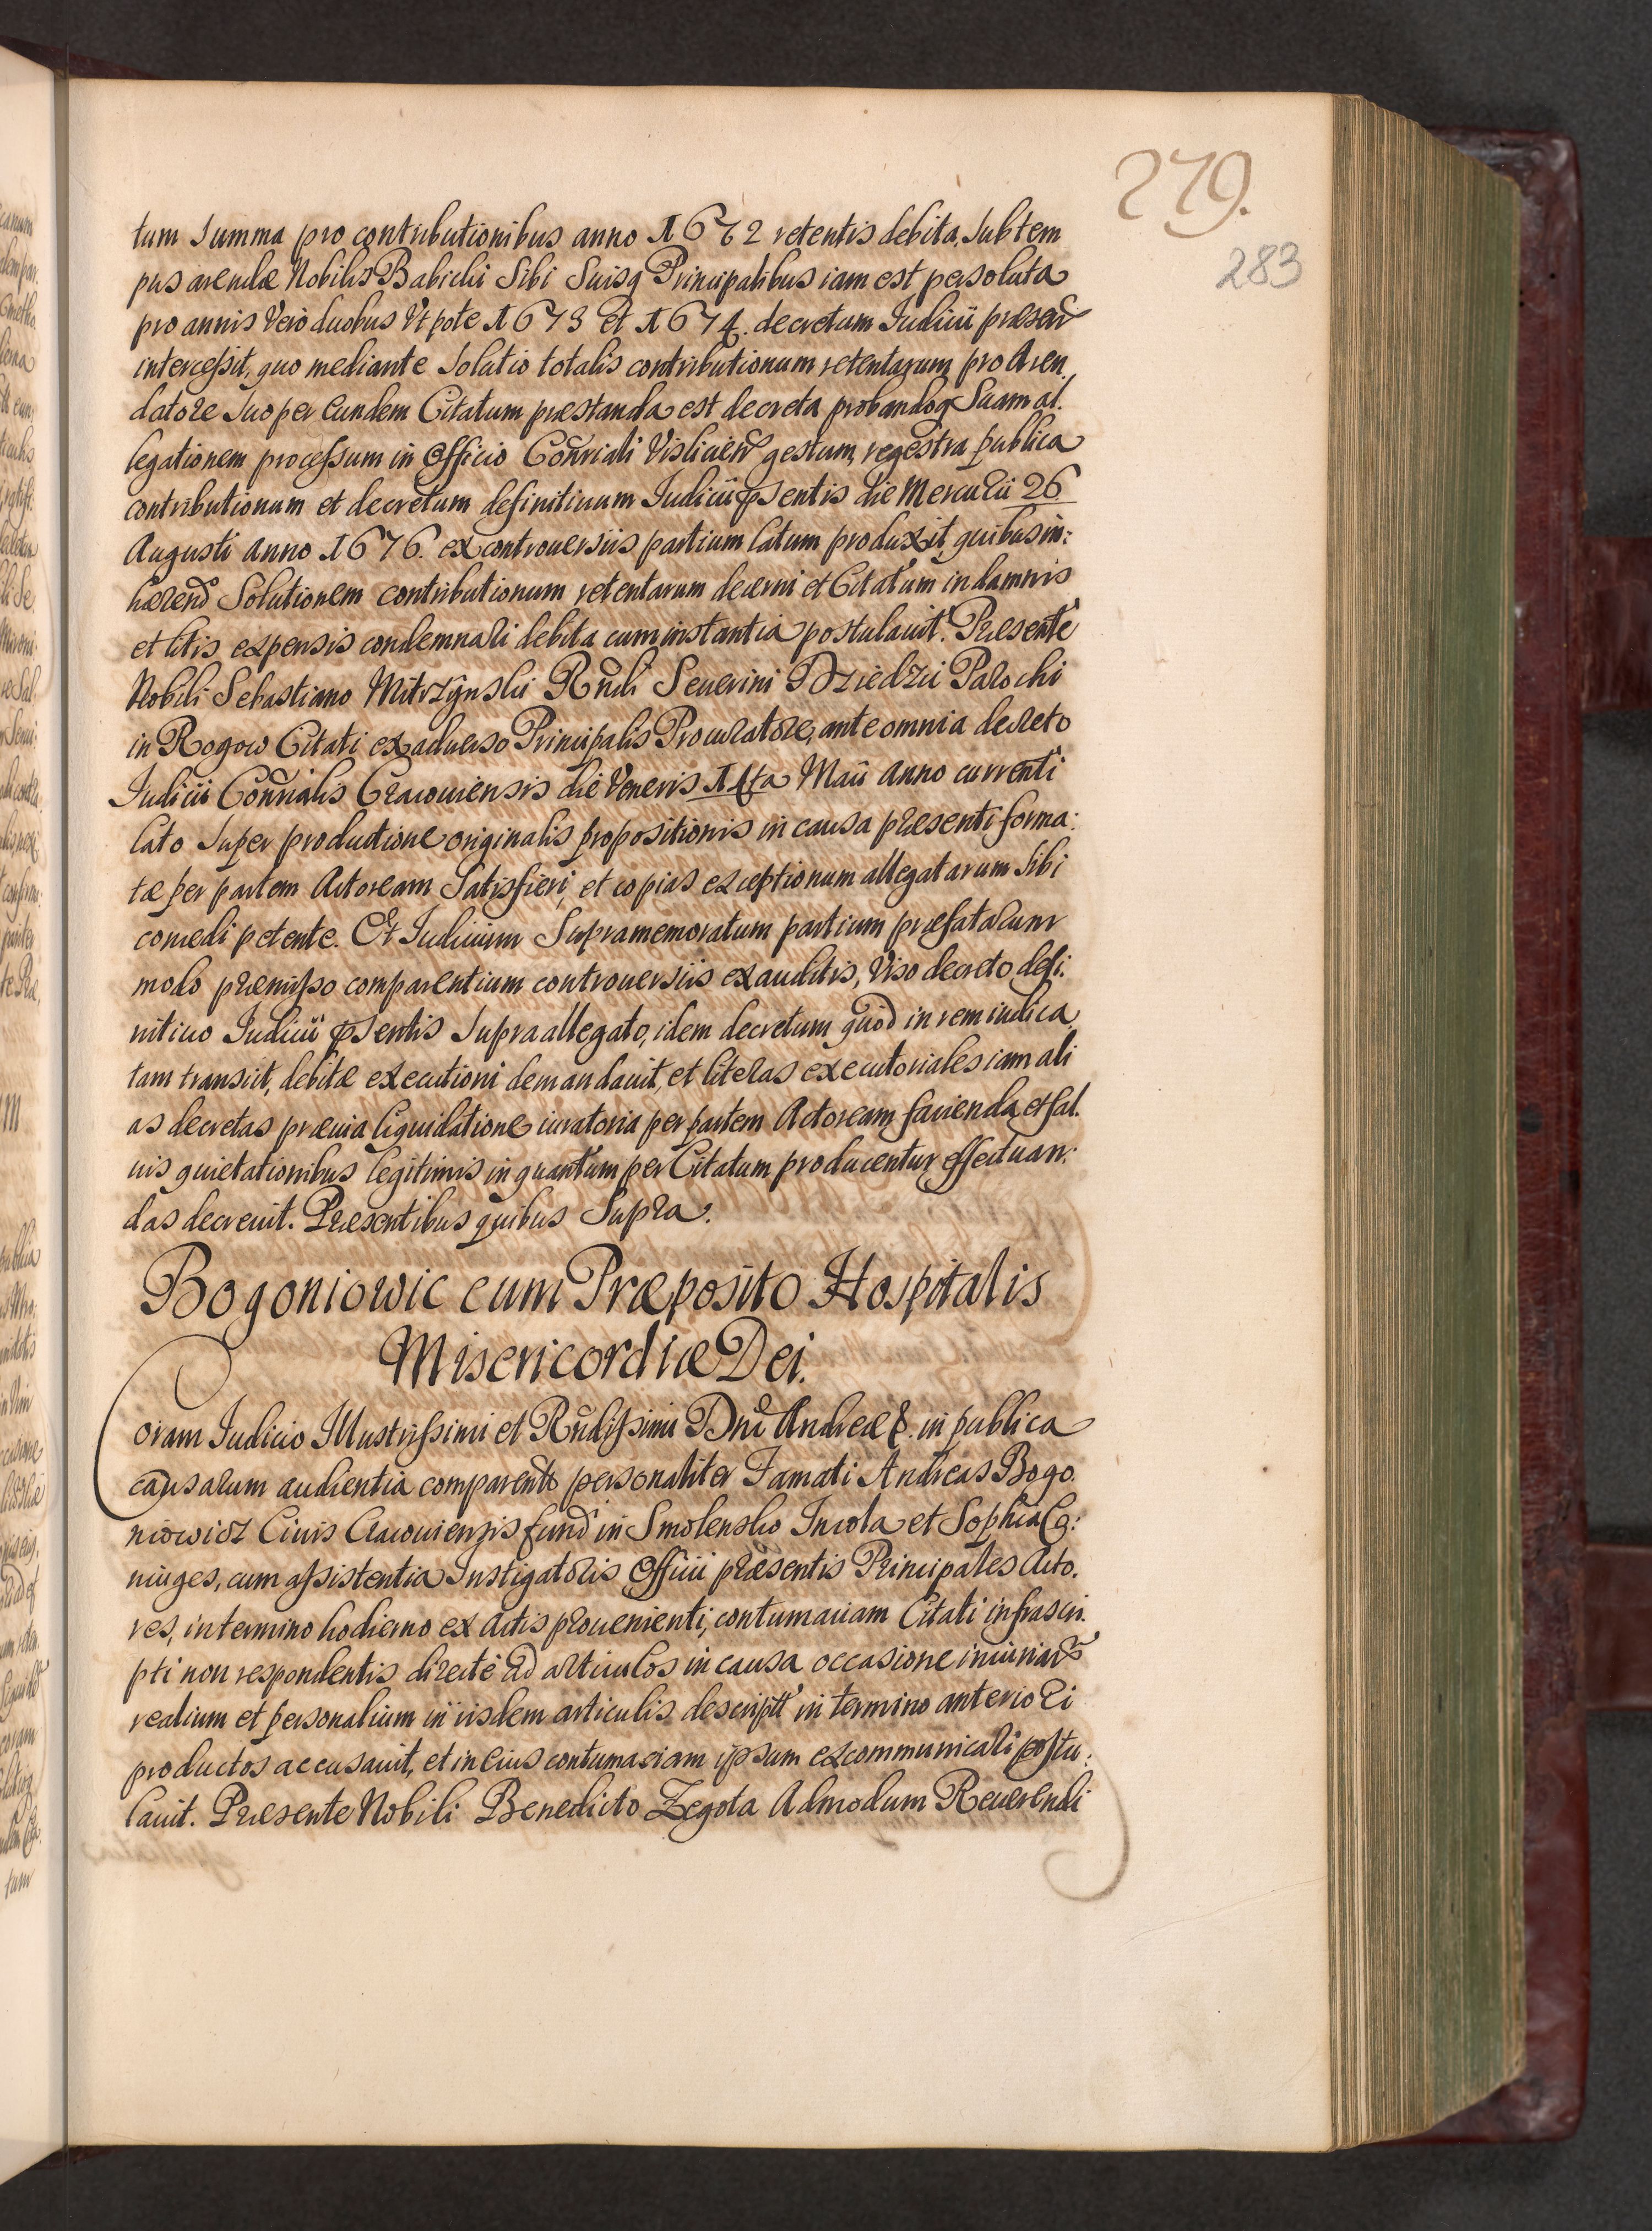 279.
283
tum summa pro contributionibus anno 1672 retentis debita, sub tem
pus arendæ Nobilis Babicki sibi suisq Principalibus iam est persoluta
pro annis vero duobus Vtpote 1673 et 1674. decretum Iudicii præsen
intercessit, quo mediante solutio totalis contributionum retentarum pro Aren,
datore suo per eundem Citatum præstanda est decreta probandoq suam al.
legationem processum in officio Consriali Vislicien gestum, regestra publica
contributionum et decretum definitiuum Iudicii psentis die Mercurii 26
Augusti Anno 1676. ex controuersiis partium latum produxit, quibus in:
hærend Solutionem contributionum retentarum decerni et Citatum in damnis
et litis expensis condemnari debita cum instantia postulauit. Præsente
Nobili Sebastiano Mitrzynski Rndi Seuerini Dziedzic Parochi
in Rogow Citati ex aduerso Principalis Procuratore, ante omnia decreto
Iudicii Consrialis Cracouiensis die Veneris 14ta Maii Anno currenti
lato super productione originalis propositionis in causa præsenti forma:
tæ per partem Actoream Satisfieri, et copias exceptionum allegatarum sibi
concedi petente. Et Iudicium Supramemoratum partium præfatarum
modo præmisso comparentium controuersiis exauditis, Viso decreto defi:
nitiuo Iudicii psentis supra allegato, idem decretum quod in rem iudica,
tam transiit, debitæ executioni demandauit, et literas executoriales iam ali
as decretas præuia liquidatione iuratoria per partem Actoream facienda, et sal.
uis quietationibus legitimis in quantum per Citatum producentur effectuan:
das decreuit. Præsentibus quibus Supra.
Bogoniowic cum Præposito Hospitalis
Misericordiæ Dei.
Coram Iudicio Illustrissimi et Rndissimi Dni Andreæ &. in publica
causarum audientia comparento personaliter Famati Andreas Bogo.
niowicz Ciuis Cracouiensis fund in Smolensko Incola et Sophia Co:
niuges, cum assistentia Instigatoris Officii præsentis Principales Acto.
res, in termino hodierno ex Actis prouenienti, contumaciam Citati infrascri.
pti non respondentis directe ad articulos in causa occasione iniuriar
realium et personalium in iisdem articulis descriptt in termino anteriori
productos accusauit, et in eius contumaciam ipsum excommunicari postu:
lauit. Præsente Nobili Benedicto Zegota Admodum Reuerendi